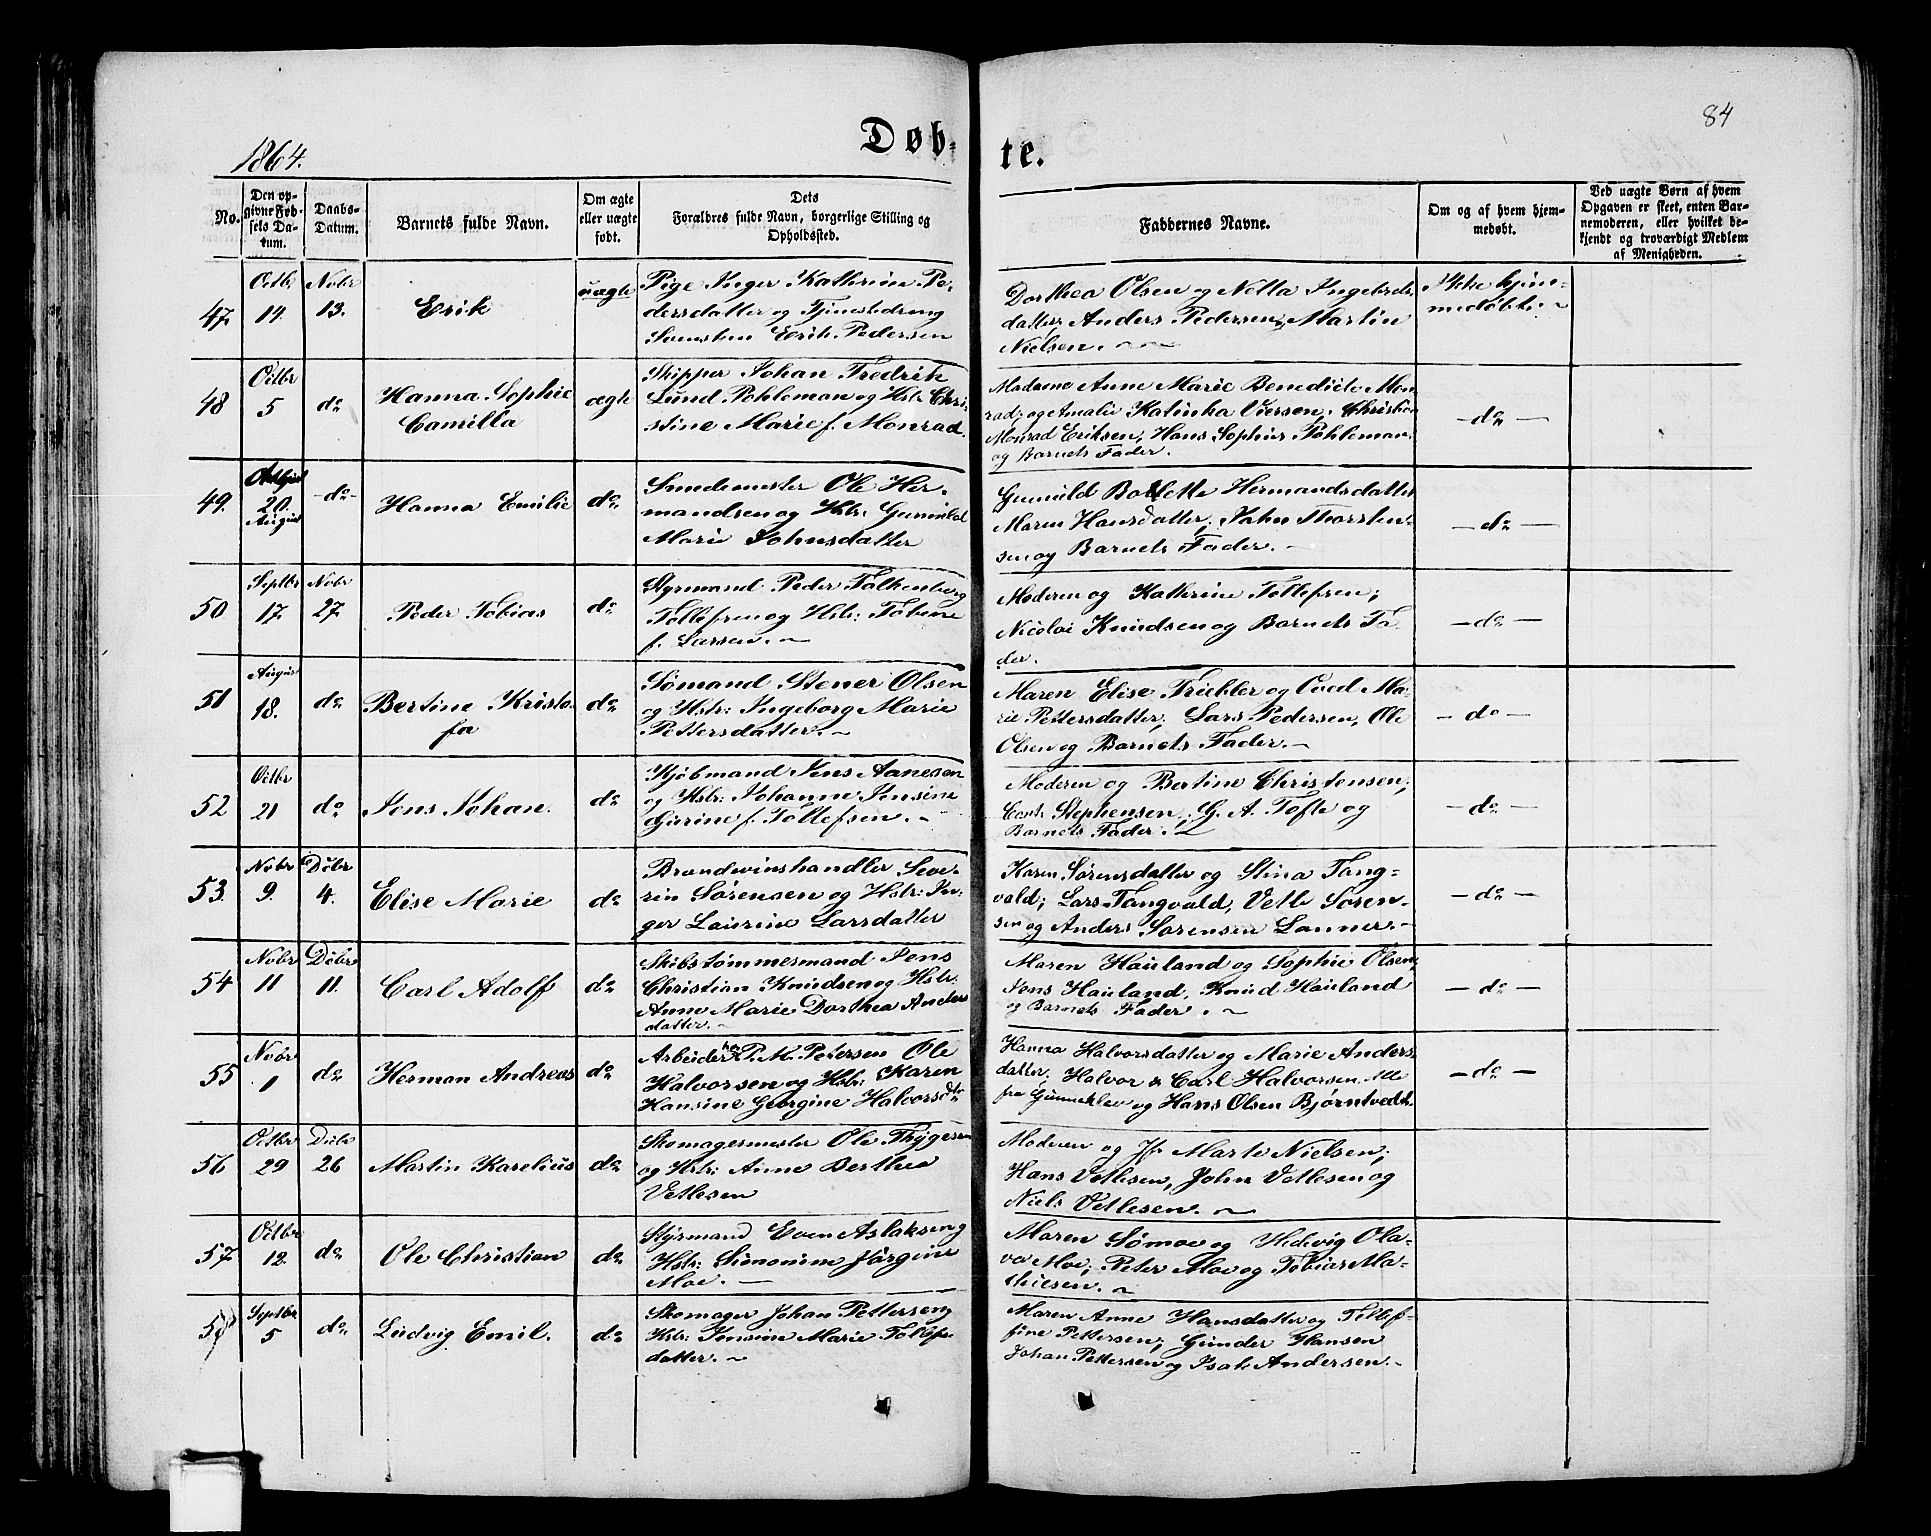 84
1864.
Døb-
te.
No.
Den op-
givne Fød-
sels Da-
tum.
Daabs-
Datum.
Barnets fulde Navn.
Om ægte
eller uægte
født.
Dets
Forældres fulde Navn, borgerlige Stilling og
Opholdssted.
Faddernes Navne.
Om og af hvem hjem-
medøbt.
Ved uægte Børn af hvem
Opgaven er skeet, enten Bar-
nemoderen, eller hvilket be-
kjendt og troværdigt Medlem
af Menigheden.
47
Octbr
14.
Nobr
13.
Erik
uægte
Pige Inger Kathrine Pe-
dersdatter og Tjenestedreng
Svensken Erik Pedersen
Dorthea Olsen og Netta Ingebrets-
datter; Anders Pedersen, Martin
Nielsen.
Ikke hjem-
medøbt.
48
Octbr
5
do
Hanna Sophie
Camilla
ægte
Skipper Johan Fredrik
Lund Pohleman og Hstr: Chri-
stine Marie f. Monrad.
Madame Anne Marie Benedicte Mon-
rad; og Amalie Katinka Viersen, Christian
Monrad Eriksen, Hans Sophus Pohleman
og Barnets Fader.
- do -
49.
20.
August
- do -
Hanna Emilie
do
Smedemester Ole Her-
mandsen og Hstr: Gunnild
Marie Johnsdatter
Gunnild Bolette Hermandsdatter
Maren Hansdatter; John Thorsten-
sen og Barnets Fader. -
- do -
50
Septbr
17
Nobr
27
Peder Tobias
do
Styrmand Peder Falkenberg
Tollefsen og Hstr: Tobine
f. Larsen.
Moderen og Kathrine Tollefsen;
Nicolai Knudsen og Barnets Fa-
der.
- do -
51
August
18.
do
Bertine Kristo-
fa
do
Sømand Stener Olsen
og Hstr: Ingeborg Marie
Pettersdatter.
Maren Elise Triebler og Oved Ma-
rie Pettersdatter, Lars Pedersen, Ole
Olsen og Barnets Fader. -
- do -
52
Octbr
21
do
Jens Johan.
do
Kjøbmand Jens Aanesen
og Hstr: Johanne Jensine
Gurine f. Tollefsen.
Moderen og Bertine Christensen;
Stephensen, G. A. Tofte og
Barnets Fader.
- do -
53.
Nobr
9.
Debr
4.
Elise Marie
do
Brændevinshandler Seve-
rin Sørensen og Hstr: In-
ger Laurine Larsdatter
Karen Sørensdatter og Stina Tang-
vald; Lars Tangvald, Vetle Søren-
sen og Anders Sørensen Lanner.
- do -
54
Nobr
11
Debr
11.
Carl Adolf
do
Skibstømmesmand Jens
Christian Knudsen og Hstr:
Anne Marie Dorthea Anders
datter.
Maren Hauland og Sophie Olsen;
Jens Hauland, Knud Hauland
og Barnets Fader.
- do -
55
Nobr
1
do
Herman Andreas
do
Arbeider hos P. M. Petersen Ole
Halvorsen og Hstr: Karen
Hansine Georgine Halvorsdtr
Hanna Halvorsdatter og Marie Anders-
datter; Halvor & Carl Halvorsen Alle
fra Gunneklev og Hans Olsen Bjørntvedt.
- do -
56
Octbr
29
Debr
26
Martin Karelius
do
Skomagermester Ole Thygesen
og Hstr: Anne Berthea
Vetlesen
Moderen og Jf. Marte Nielsen;
Hans Vetlesen, John Vetlesen og
Niels Vetlesen.
57
Octbr
12.
do
Ole Christian
do
Styrmand Even Aslaksen og
Hstr: Simonine Jørgine
Moe.
Maren Sømoe og Hedvig Ola-
va Moe; Peter Moe og Tobias Ma-
thiesen.
58
Septbr
5
do
Ludvig Emil.
do
Skomager Johan Pettersen og
Hstr: Jensine Marie Tollefs
datter.
Maren Anne Hansdatter og Tollef-
fine Pettersen; Gunder Hansen
Johan Pettersen og Isak Andersen.